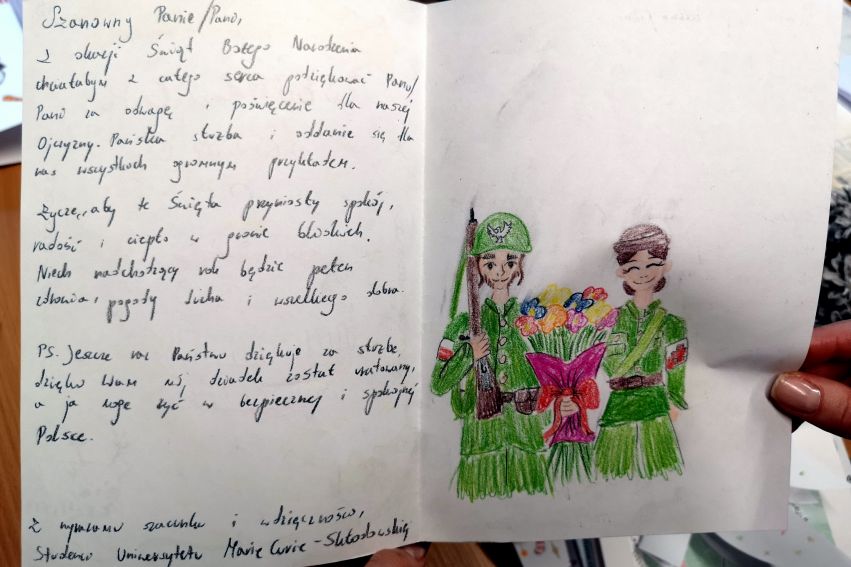 Szanowny Panie/Pani,
Z okazji Świąt Bożego Narodzenia
chciałabym z całego serca podziękować Panu/
Pani za odwagę i poświęcenie dla naszej
Ojczyzny. Państwa służba i oddanie się dla
nas wszystkich ogromnym przykładem.
Życzę, aby te Święta przyniosły spokój,
radość i ciepło w gronie bliskich.
Niech nadchodzący rok będzie pełen
zdrowia, pogody ducha i wszelkiego dobra.
PS. Jeszcze raz Państwu dziękuję za służbę,
dzięki Wam mój dziadek został uratowany,
a ja mogę żyć w bezpiecznej i spokojnej
Polsce.
Z wyrazami szacunku i wdzięczności,
Studenci Uniwersytetu Marie Curie-Skłodowskiej